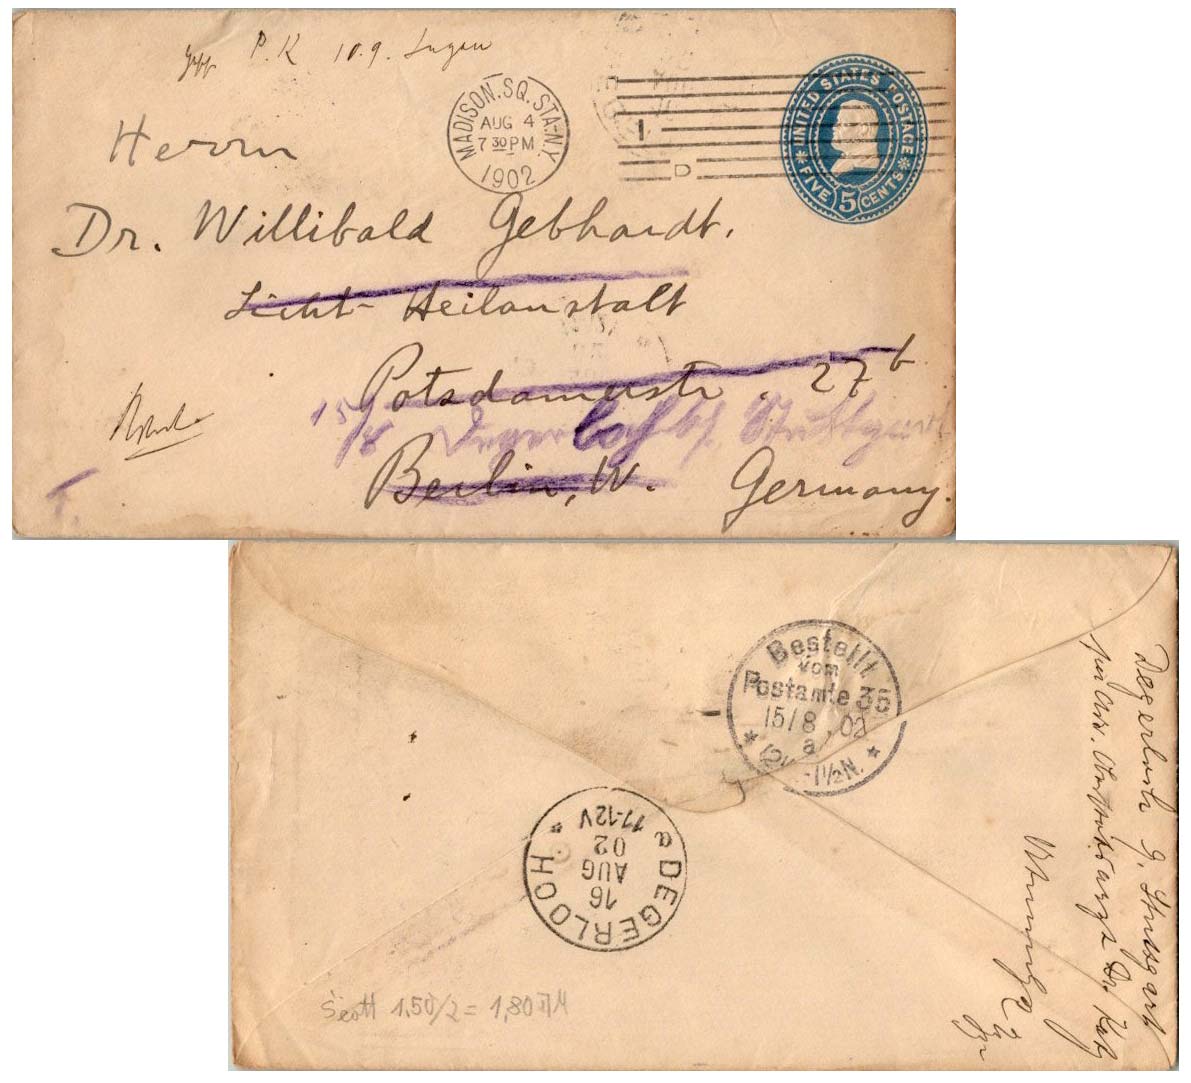 P. K 10.9.
MADISON.SQ.STA-N.Y.
AUG 4
7 30 PM
1902
1
D
UNITED STATES POSTAGE
FIVE 5 CENTS
Herrn
Dr. Willibald Gebhardt.
Licht-Heilanstalt
Potsdamerstr. 27b
15/8 Degerloch b/ Stuttgart
Berlin, W. Germany.
Bestellt
vom
Postamte 35
15/8.02
a
-1½N.
DEGERLOCH
16
AUG
02
11-12V
a
Degerloch b. Stuttgart
Dr. Katz
Scott 1,50/2 = 1,80 DM